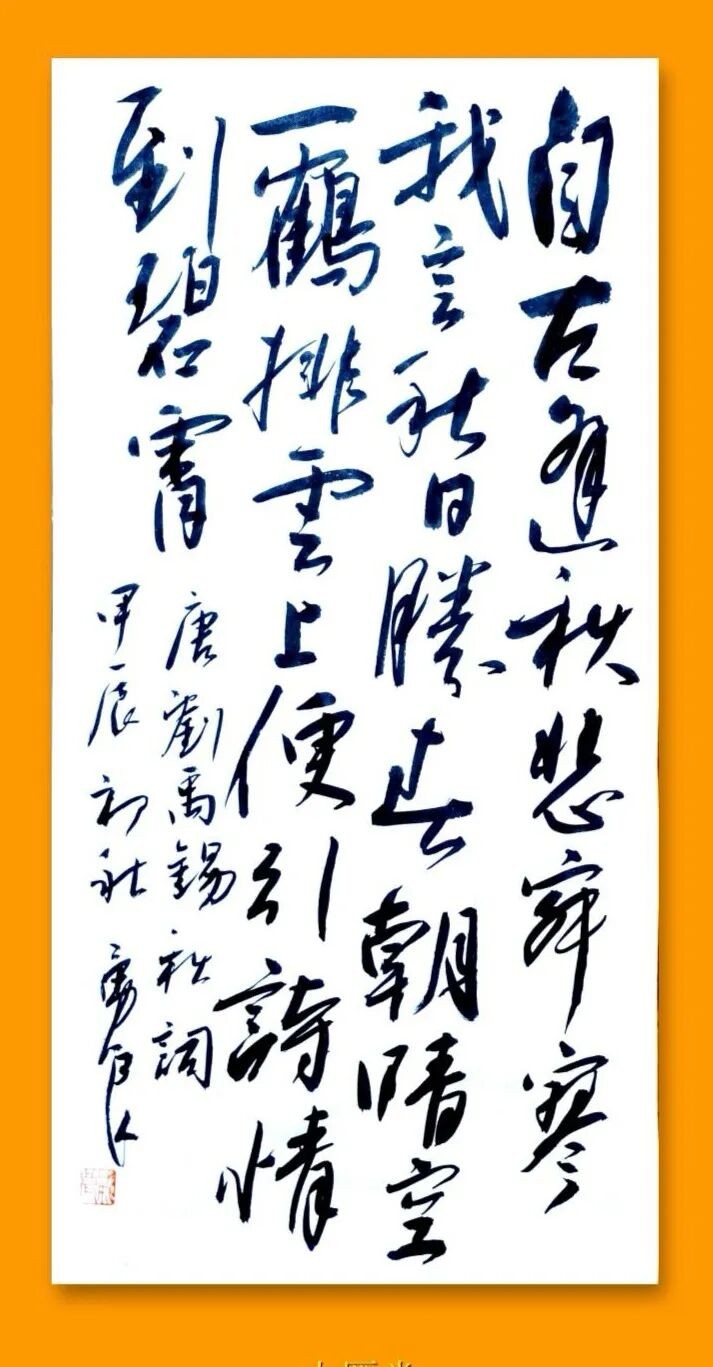 自古逢秋悲寂寥
我言秋日勝春朝晴空
一鶴排雲上便引詩情
到碧霄
唐劉禹錫秋詞
甲辰初秋